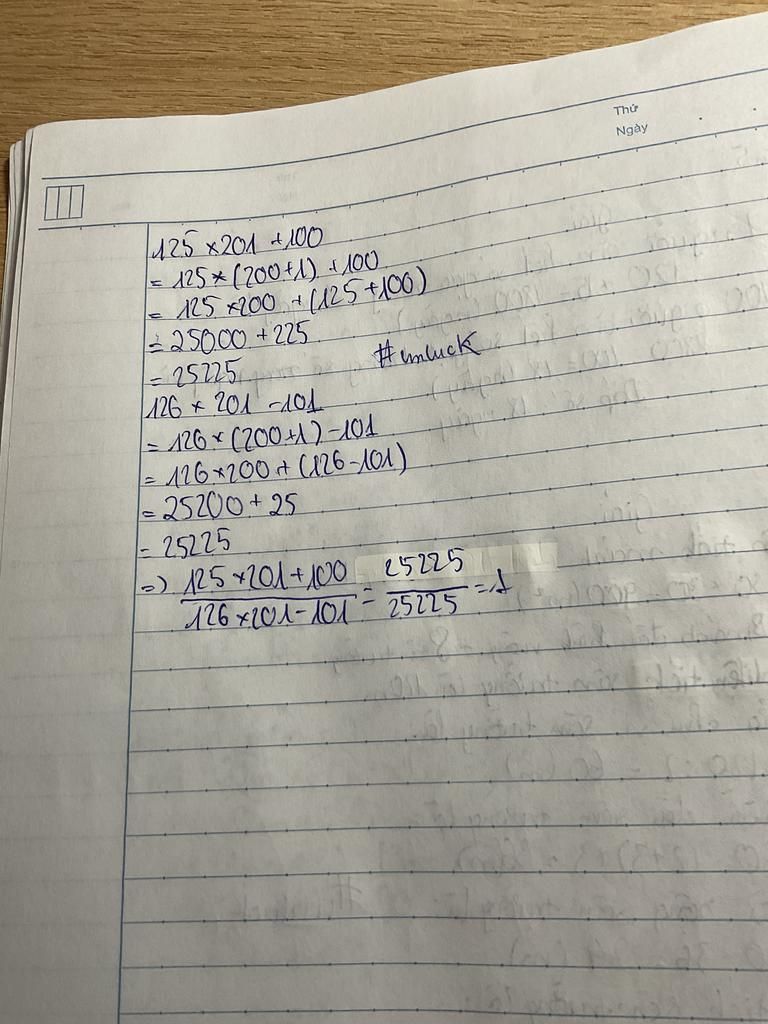 Thứ
Ngày
125 × 201 + 100
= 125 × (200+1) + 100
= 125 × 200 + (125 + 100)
= 25000 + 225
= 25225
#unluck
126 × 201 - 101
= 126 × (200+1) - 101
= 126 × 200 + (126 - 101)
= 25200 + 25
= 25225
=) 125 × 201 + 100 / 126 × 201 - 101 = 25225 / 25225 = 1